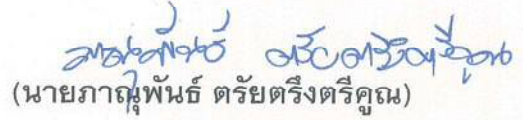 ภาณุพันธ์ ตรัยตรึงตรีคูณ
(นายภาณุพันธ์ ตรัยตรึงตรีคูณ)